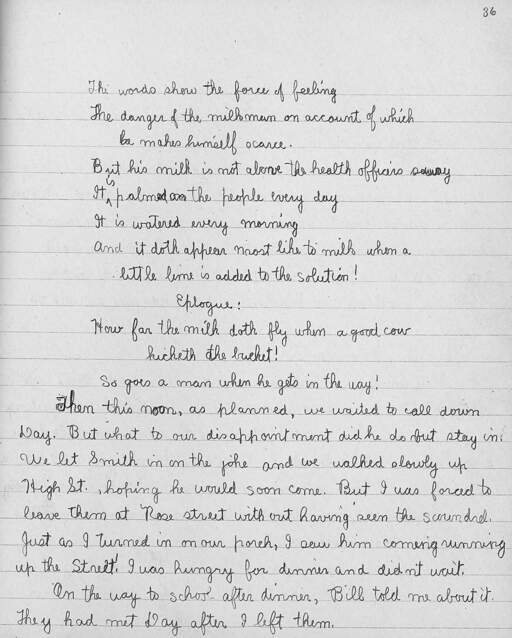 36
The words show the force of feeling
The danger of the milkman on account of which
he makes himself scarce.
But his milk is not above the health officers
Its palmed on the people every day
It is watered every morning
And it doth appear most like to milk when a
little lime is added to the solution!
Eplogue:
How far the milk doth fly when a good cow
kicketh the bucket!
So goes a man when he gets in the way!
Then this noon, as planned, we waited to call down
Day. But what to our disappointment did he do but stay in.
We let Smith in on the joke and we walked slowly up
High St., hoping he would soon come. But I was forced to
leave them at Rose street without having seen the scoundrel.
Just as I turned in on our porch, I saw him coming running
up the Street! I was hungry for dinner and didn't wait.
On the way to school after dinner, Bill told me about it.
They had met Day after I left them.